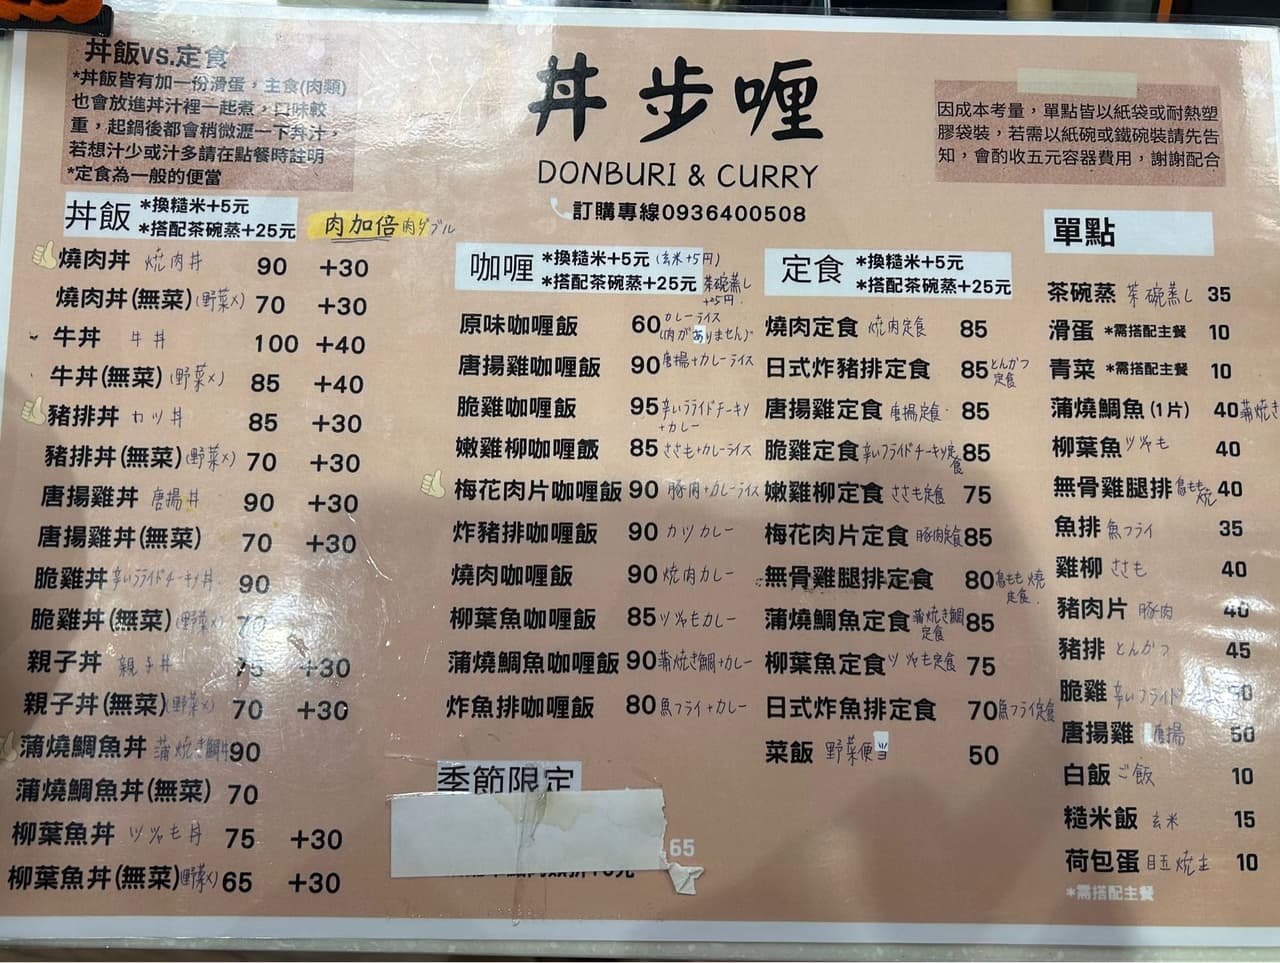 丼飯VS.定食
*丼飯皆有加一份滑蛋，主食(肉類)
也會放進丼汁裡一起煮，口味較
重，起鍋後都會稍微瀝一下丼汁，
若想汁少或汁多請在點餐時註明
*定食為一般的便當
丼步喱
DONBURI & CURRY
訂購專線0936400508
因成本考量，單點皆以紙袋或耐熱塑
膠袋裝，若需以紙碗或鐵碗裝請先告
知，會酌收五元容器費用，謝謝配合
丼飯 *換糙米+5元
*搭配茶碗蒸+25元
肉加倍 肉ダブル
燒肉丼 焼肉丼 90 +30
燒肉丼(無菜) (野菜×) 70 +30
牛丼 牛丼 100 +40
牛丼(無菜) (野菜×) 85 +40
豬排丼 カツ丼 85 +30
豬排丼(無菜) (野菜×) 70 +30
唐揚雞丼 唐揚丼 90 +30
唐揚雞丼(無菜) 70 +30
脆雞丼 辛いフライドチーキン丼 90
脆雞丼(無菜) (野菜×) 70
親子丼 親子丼 75 +30
親子丼(無菜) (野菜×) 70 +30
蒲燒鯛魚丼 蒲焼き鯛丼 90
蒲燒鯛魚丼(無菜) 70
柳葉魚丼 ツヅャも丼 75 +30
柳葉魚丼(無菜) (野菜×) 65 +30
咖喱 *換糙米+5元 (玄米+5円)
*搭配茶碗蒸+25元 茶碗蒸し
+25円
原味咖喱飯 60 カレーライス
(肉がありません)
唐揚雞咖喱飯 90 唐揚+カレーライス
脆雞咖喱飯 95 辛いフライドチーキン
+カレー
嫩雞柳咖喱飯 85 ささも+カレーライス
梅花肉片咖喱飯 90 豚肉+カレーライス
炸豬排咖喱飯 90 カツカレー
燒肉咖喱飯 90 焼肉カレー
柳葉魚咖喱飯 85 ツヅャもカレー
蒲燒鯛魚咖喱飯 90 蒲焼き鯛+カレー
炸魚排咖喱飯 80 魚フライ+カレー
季節限定
65
定食 *換糙米+5元
*搭配茶碗蒸+25元
燒肉定食 焼肉定食 85
日式炸豬排定食 85 とんかつ
定食
唐揚雞定食 唐揚定食 85
脆雞定食 辛いフライドチーキン定食 85
嫩雞柳定食 ささも定食 75
梅花肉片定食 豚肉定食 85
無骨雞腿排定食 80 鳥もも焼
定食
蒲燒鯛魚定食 蒲焼き鯛 85
定食
柳葉魚定食 ツヅャも定食 75
日式炸魚排定食 70 魚フライ定食
菜飯 野菜便当 50
單點
茶碗蒸 茶碗蒸し 35
滑蛋 *需搭配主餐 10
青菜 *需搭配主餐 10
蒲燒鯛魚(1片) 40 蒲焼き
柳葉魚 ツヅャも 40
無骨雞腿排 鳥もも焼 40
魚排 魚フライ 35
雞柳 ささも 40
豬肉片 豚肉 40
豬排 とんかつ 45
脆雞 辛いフライド
唐揚雞 唐揚 50
白飯 ご飯 10
糙米飯 玄米 15
荷包蛋 目玉焼き 10
*需搭配主餐